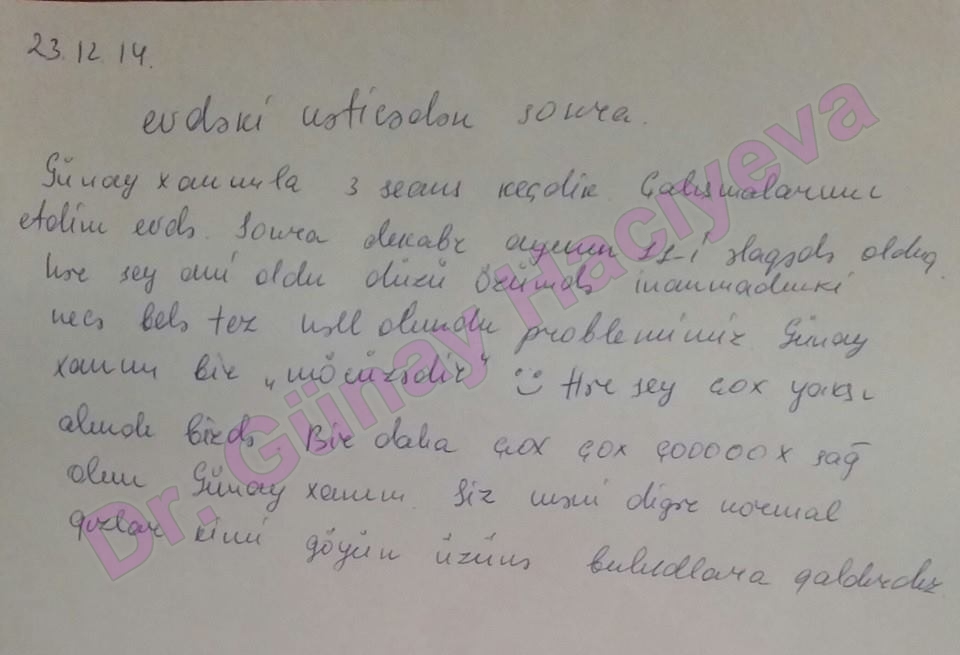 23.12.14.
evdəki nəticədən sonra.
Günay xanımla 3 seans keçdik. Çalışmalarımı
etdim evdə. Sonra dekabr ayının 11-i əlaqədə olduq.
hər şey ani oldu düzü Özümdə inanmadımki
necə belə tez həll olundu problemimiz. Günay
xanım bir „möcüzədir" ü Hər şey çox yaxşı
alındı bizdə. Bir daha çox çox çooooox sağ
olun Günay xanım. Siz məni digər normal
qızlar kimi göyün üzünə buludlara qaldırdız
Dr. Günay Hacıyeva